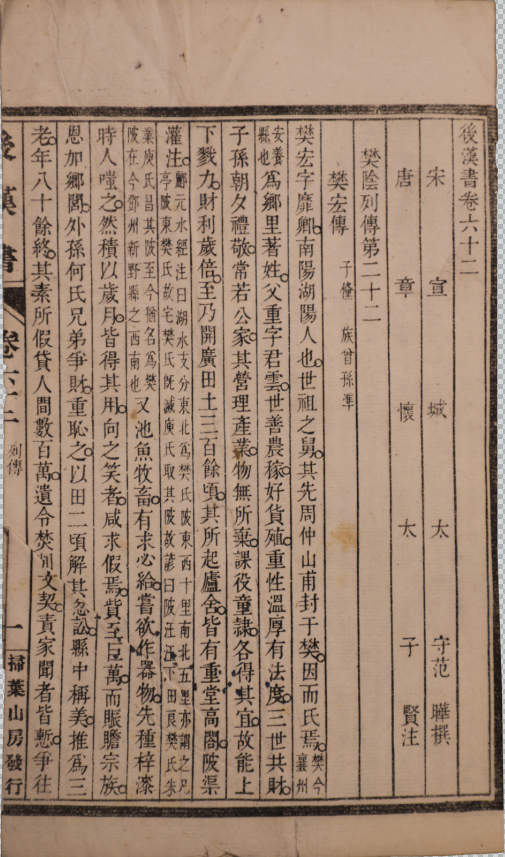 後漢書卷六十二
宋宣城太守范曄撰
唐章懷太子賢注
樊陰列傳第二十二
樊宏傳 子儵 族曾孫準
樊宏字靡卿南陽湖陽人也世祖之舅其先周仲山甫封于樊因而氏焉樊今襄州
安養縣也為鄉里著姓父重字君雲世善農稼好貨殖重性溫厚有法度三世共財
子孫朝夕禮敬常若公家其營理產業物無所棄課役童隸各得其宜故能上
下戮力財利歲倍至乃開廣田土三百餘頃其所起廬舍皆有重堂高閣陂渠
灌注酈元水經注曰湖水支分東北為樊氏陂東西十里南北五里亦謂之凡亭陂東樊氏故宅樊氏既滅庾氏取其陂故諺曰陂汪汪下田良樊氏失
業庾氏昌其陂至今猶名為樊陂在今鄧州新野縣之西南也又池魚牧畜有求必給嘗欲作器物先種梓漆
時人嗤之然積以歲月皆得其用向之笑者咸求假焉貲至巨萬而賑贍宗族
恩加鄉閭外孫何氏兄弟爭財重恥之以田二頃解其忿訟縣中稱美推為三
老年八十餘終其素所假貸人間數百萬遺令焚削文契責家聞者皆慙爭往
後漢書 卷六十二 列傳 一 掃葉山房發行